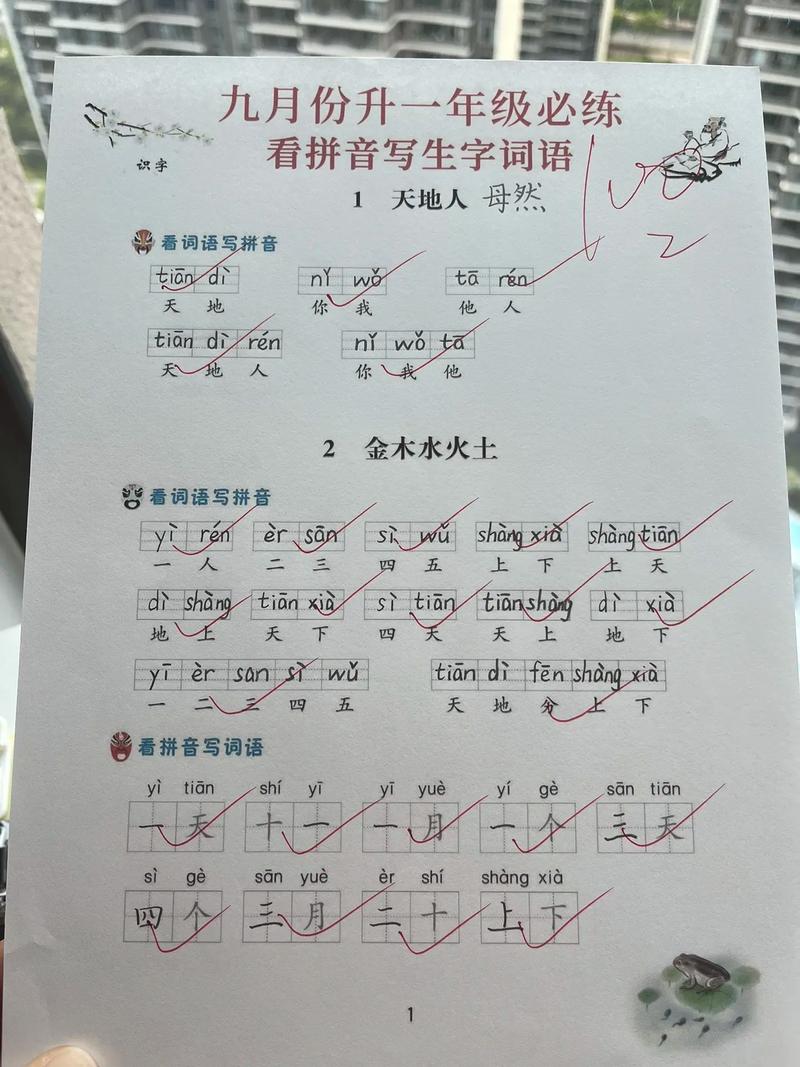 九月份升一年级必练
看拼音写生字词语
识字
1 天地人 母然
100
2
看词语写拼音
tiān dì nǐ wǒ tā rén
天 地 你 我 他 人
tiān dì rén nǐ wǒ tā
天 地 人 你 我 他
2 金木水火土
看词语写拼音
yì rén èr sān sì wǔ shàng xià shàng tiān
一 人 二 三 四 五 上 下 上 天
dì shàng tiān xià sì tiān tiān shàng dì xià
地 上 天 下 四 天 天 上 地 下
yī èr san sì wǔ tiān dì fēn shàng xià
一 二 三 四 五 天 地 分 上 下
看拼音写词语
yì tiān shí yī yī yuè yí gè sān tiān
一天 十一 一月 一个 三天
sì gè sān yuè èr shí shàng xià
四个 三月 二十 上下
1